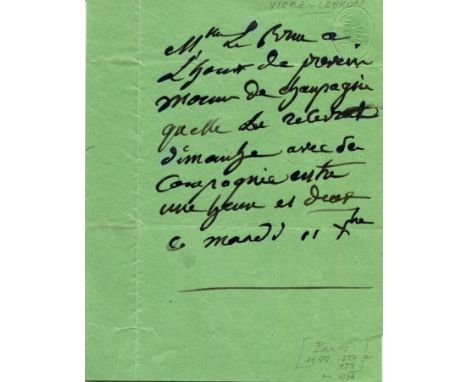 VIGÉE-LEBRUN
Mme Le Brun a
L'honr de prevenir
Mocieur de champagnie
quelle Le recevrat
dimanche avec sa
Compagnie entre
une heure et deux
Ce mardi 11 Xbre
Paris
11.XII. 1827
1832
1838